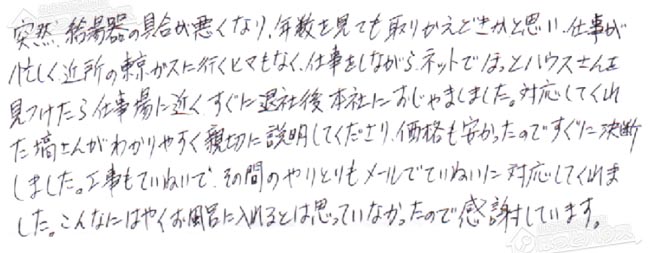 突然、給湯器の具合が悪くなり、年数を見ても取りかえどきかと思い、仕事が
忙しく、近所の東京ガスに行くヒマもなく、仕事をしながらネットでほっとハウスさんを
見つけたら仕事場に近くすぐに退社後本社におじゃましました。対応してくれ
た塙さんがわかりやすく親切に説明してくださり、価格も安かったのですぐに決断
しました。工事もていねいで、その間のやりとりもメールでていねいに対応してくれま
した。こんなにはやくお風呂に入れるとは思っていなかったので感謝しています。